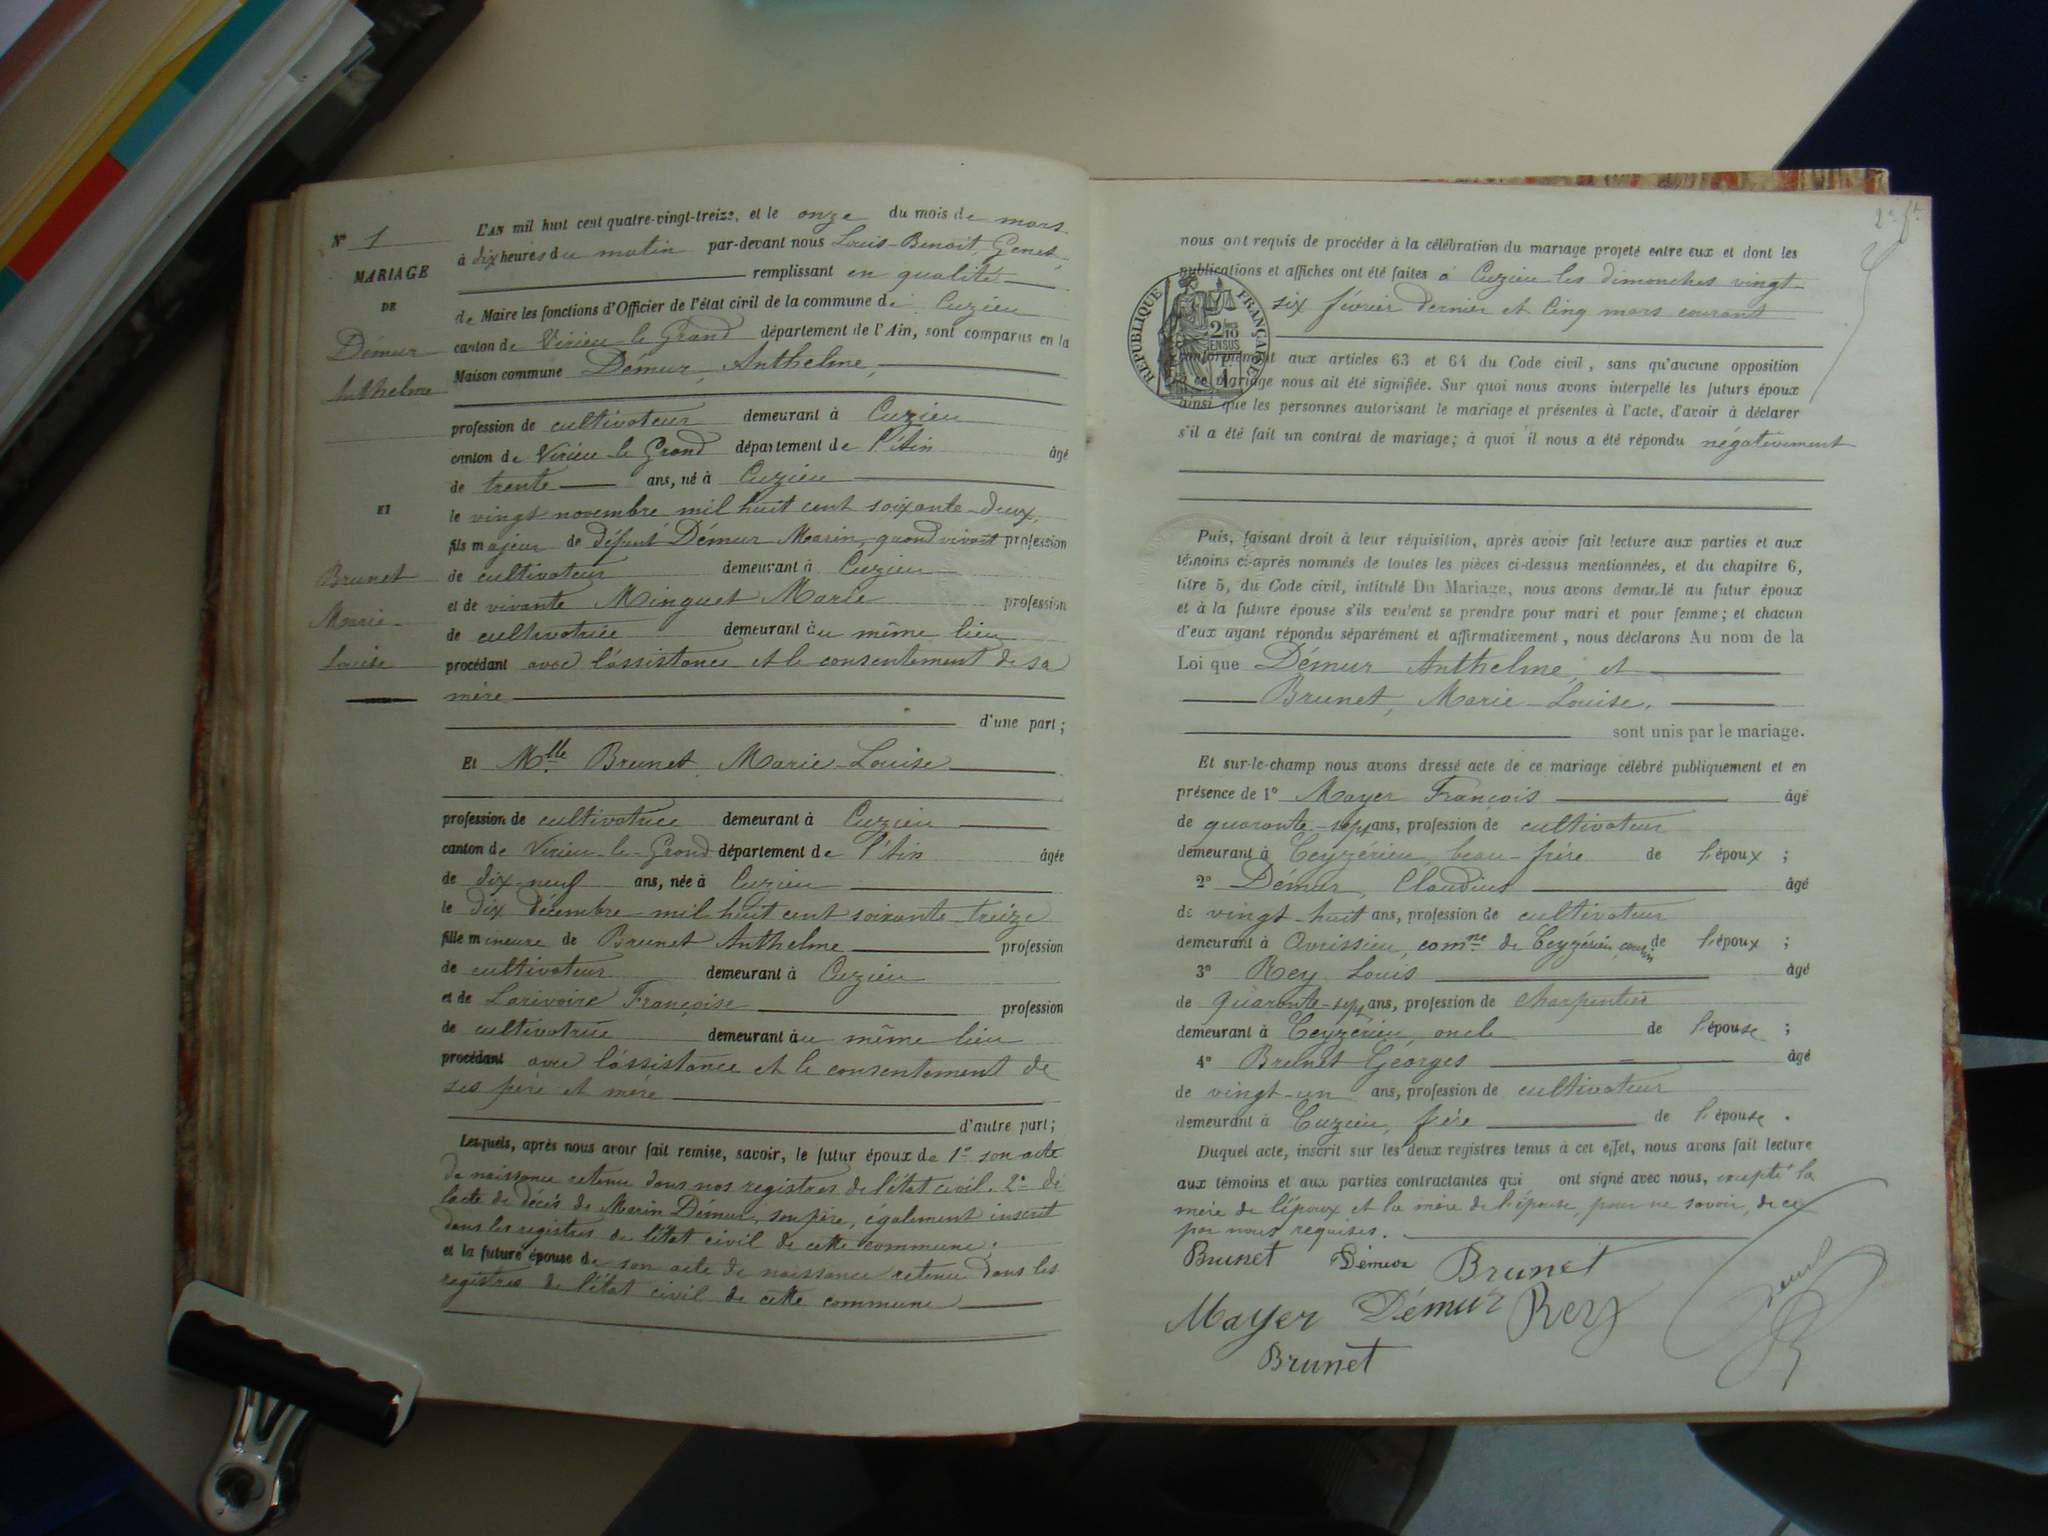 N° 1
MARIAGE
DE
Démur
Anthelme
ET
Brunet
Marie
Louise
L'AN mil huit cent quatre-vingt-treize, et le onze du mois de mars
à dix heures du matin par-devant nous Louis-Benoit, Genet,
remplissant en qualité
de Maire les fonctions d'Officier de l'état civil de la commune de Cuzieu
canton de Virieu-le-Grand département de l'Ain, sont comparus en la
Maison commune Démur, Anthelme,
profession de cultivateur demeurant à Cuzieu
canton de Virieu-le-Grand département de l'Ain âgé
de trente ans, né à Cuzieu
le vingt novembre mil huit cent soixante-deux,
fils majeur de défunt Démur Marin, quand vivait profession
de cultivateur demeurant à Cuzieu
et de vivante Minguet Marie profession
de cultivatrice demeurant au même lieu
procédant avec l'assistance et le consentement de sa
mère
d'une part;
Et Mlle Brunet, Marie-Louise
profession de cultivatrice demeurant à Cuzieu
canton de Virieu-le-Grand département de l'Ain âgée
de dix-neuf ans, née à Cuzieu
le dix décembre mil huit cent soixante-treize
fille mineure de Brunet Anthelme profession
de cultivateur demeurant à Cuzieu
et de Larivoire Françoise profession
de cultivatrice demeurant au même lieu
procédant avec l'assistance et le consentement de
ses père et mère
d'autre part;
Lesquels, après nous avoir fait remise, savoir, le futur époux de 1° son acte
de naissance retenu dans nos registres de l'état civil. 2° de
l'acte de décès de Marin Démur, son père, également inscrit
dans les registres de l'état civil de cette commune;
et la future épouse de son acte de naissance retenu dans les
registres de l'état civil de cette commune
2e ft
nous ont requis de procéder à la célébration du mariage projeté entre eux et dont les
publications et affiches ont été faites à Cuzieu les dimanches vingt-
six février dernier et cinq mars courant
RÉPUBLIQUE FRANÇAISE
2/10
EN SUS
conformément aux articles 63 et 64 du Code civil, sans qu'aucune opposition
à ce mariage nous ait été signifiée. Sur quoi nous avons interpellé les futurs époux
ainsi que les personnes autorisant le mariage et présentes à l'acte, d'avoir à déclarer
s'il a été fait un contrat de mariage; à quoi il nous a été répondu négativement
Puis, faisant droit à leur réquisition, après avoir fait lecture aux parties et aux
témoins ci-après nommés de toutes les pièces ci-dessus mentionnées, et du chapitre 6,
titre 5, du Code civil, intitulé Du Mariage, nous avons demandé au futur époux
et à la future épouse s'ils veulent se prendre pour mari et pour femme; et chacun
d'eux ayant répondu séparément et affirmativement, nous déclarons Au nom de la
Loi que Démur Anthelme, et
Brunet, Marie-Louise.
sont unis par le mariage.
Et sur-le-champ nous avons dressé acte de ce mariage célébré publiquement et en
présence de 1° Mayer François âgé
de quarante-sept ans, profession de cultivateur
demeurant à Ceyzérieu, beau-frère de l'époux;
2° Démur, Claudius âgé
de vingt-huit ans, profession de cultivateur
demeurant à Avrissieu, comne de Ceyzérieu, cousin de l'époux;
3° Rey Louis âgé
de quarante-sept ans, profession de charpentier
demeurant à Ceyzérieu, oncle de l'épouse;
4° Brunet Georges âgé
de vingt-un ans, profession de cultivateur
demeurant à Cuzieu, frère de l'épouse.
Duquel acte, inscrit sur les deux registres tenus à cet effet, nous avons fait lecture
aux témoins et aux parties contractantes qui ont signé avec nous, excepté la
mère de l'époux et la mère de l'épouse, pour ne savoir, de ce
par nous requises.
Brunet Démur Brunet
Mayer Démur Rey Genet
Brunet